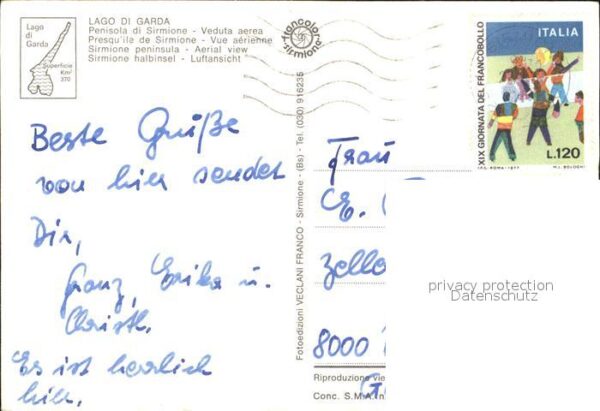 LAGO DI GARDA
Penisola di Sirmione - Veduta aerea
Presqu'ile de Sirmione - Vue aérienne
Sirmione peninsula - Aerial view
Sirmione halbinsel - Luftansicht
Lago
di
Garda
Superficie
Km²
370
sirmione
Beste Grüße
von hier sendet
Dir,
Franz, Erika u.
Christl.
Es ist herrlich
hier.
Fotoedizioni VECLANI FRANCO - Sirmione - (Bs) - Tel. (030) 916235
ITALIA
XIX GIORNATA DEL FRANCOBOLLO
L.120
I.P.S. ROMA - 1977
M.L. BOLOGNI
Frau
E.
Zello
8000
G
Riproduzione vie
Conc. S.M.A. n
privacy protection
Datenschutz